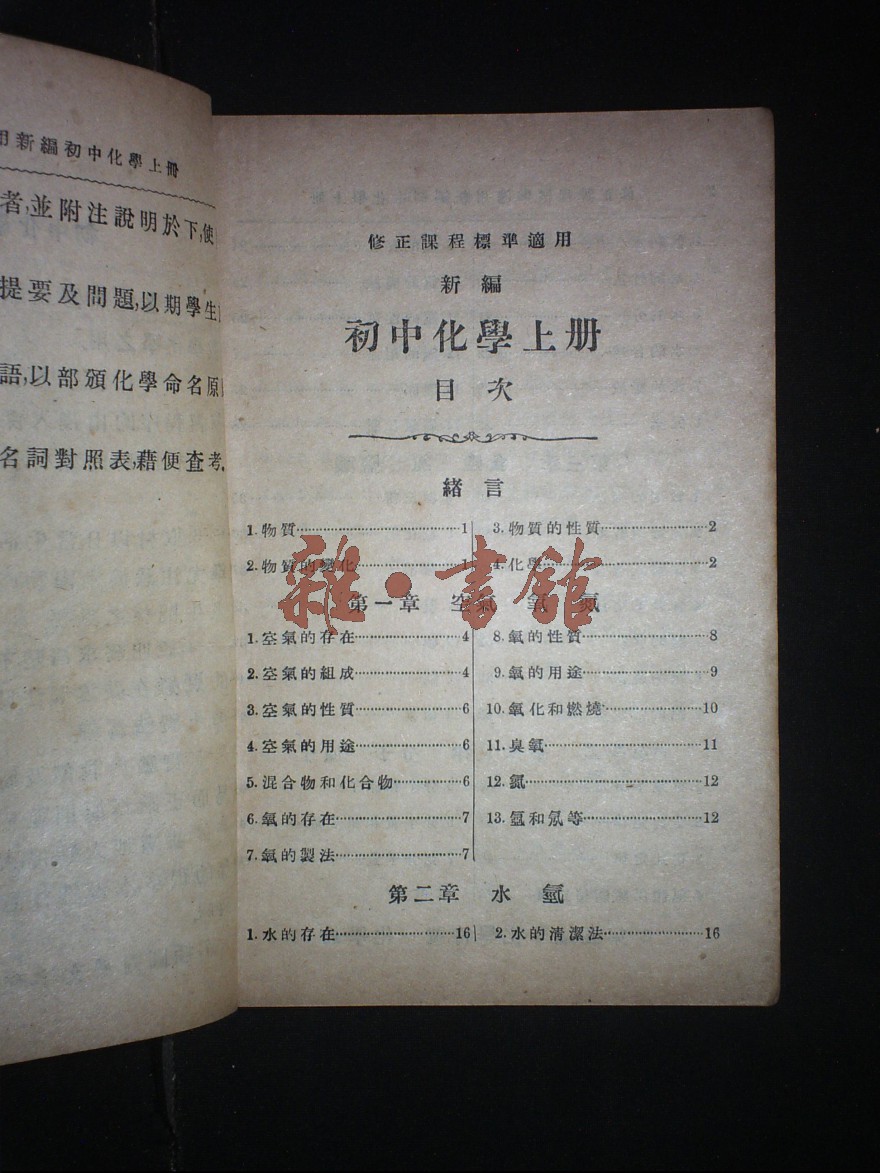 用新編初中化學上冊
者,並附注說明於下,使
提要及問題,以期學生
語,以部頒化學命名原
名詞對照表,藉便查考.
修正課程標準適用
新編
初中化學上册
目次
緒言
1.物質……1
2.物質的變化……1
3.物質的性質……2
4.化學……2
第一章 空氣 氧 氮
1.空氣的存在……4
2.空氣的組成……4
3.空氣的性質……6
4.空氣的用途……6
5.混合物和化合物……6
6.氧的存在……7
7.氧的製法……7
8.氧的性質……8
9.氧的用途……9
10.氧化和燃燒……10
11.臭氧……11
12.氮……12
13.氬和氖等……12
第二章 水 氫
1.水的存在……16
2.水的清潔法……16
雜·書館